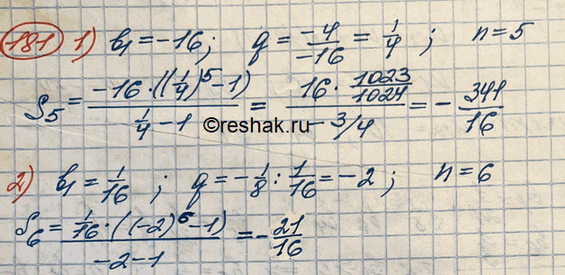 181 1) b₁ = -16; q = -4/-16 = 1/4; n = 5
S₅ = -16·((1/4)⁵-1)/(1/4 - 1) = 16·1023/1024/(-3/4) = -341/16
©reshak.ru
2) b₁ = 1/16; q = -1/8 : 1/16 = -2; n = 6
S₆ = 1/16·((-2)⁶-1)/(-2-1) = -21/16